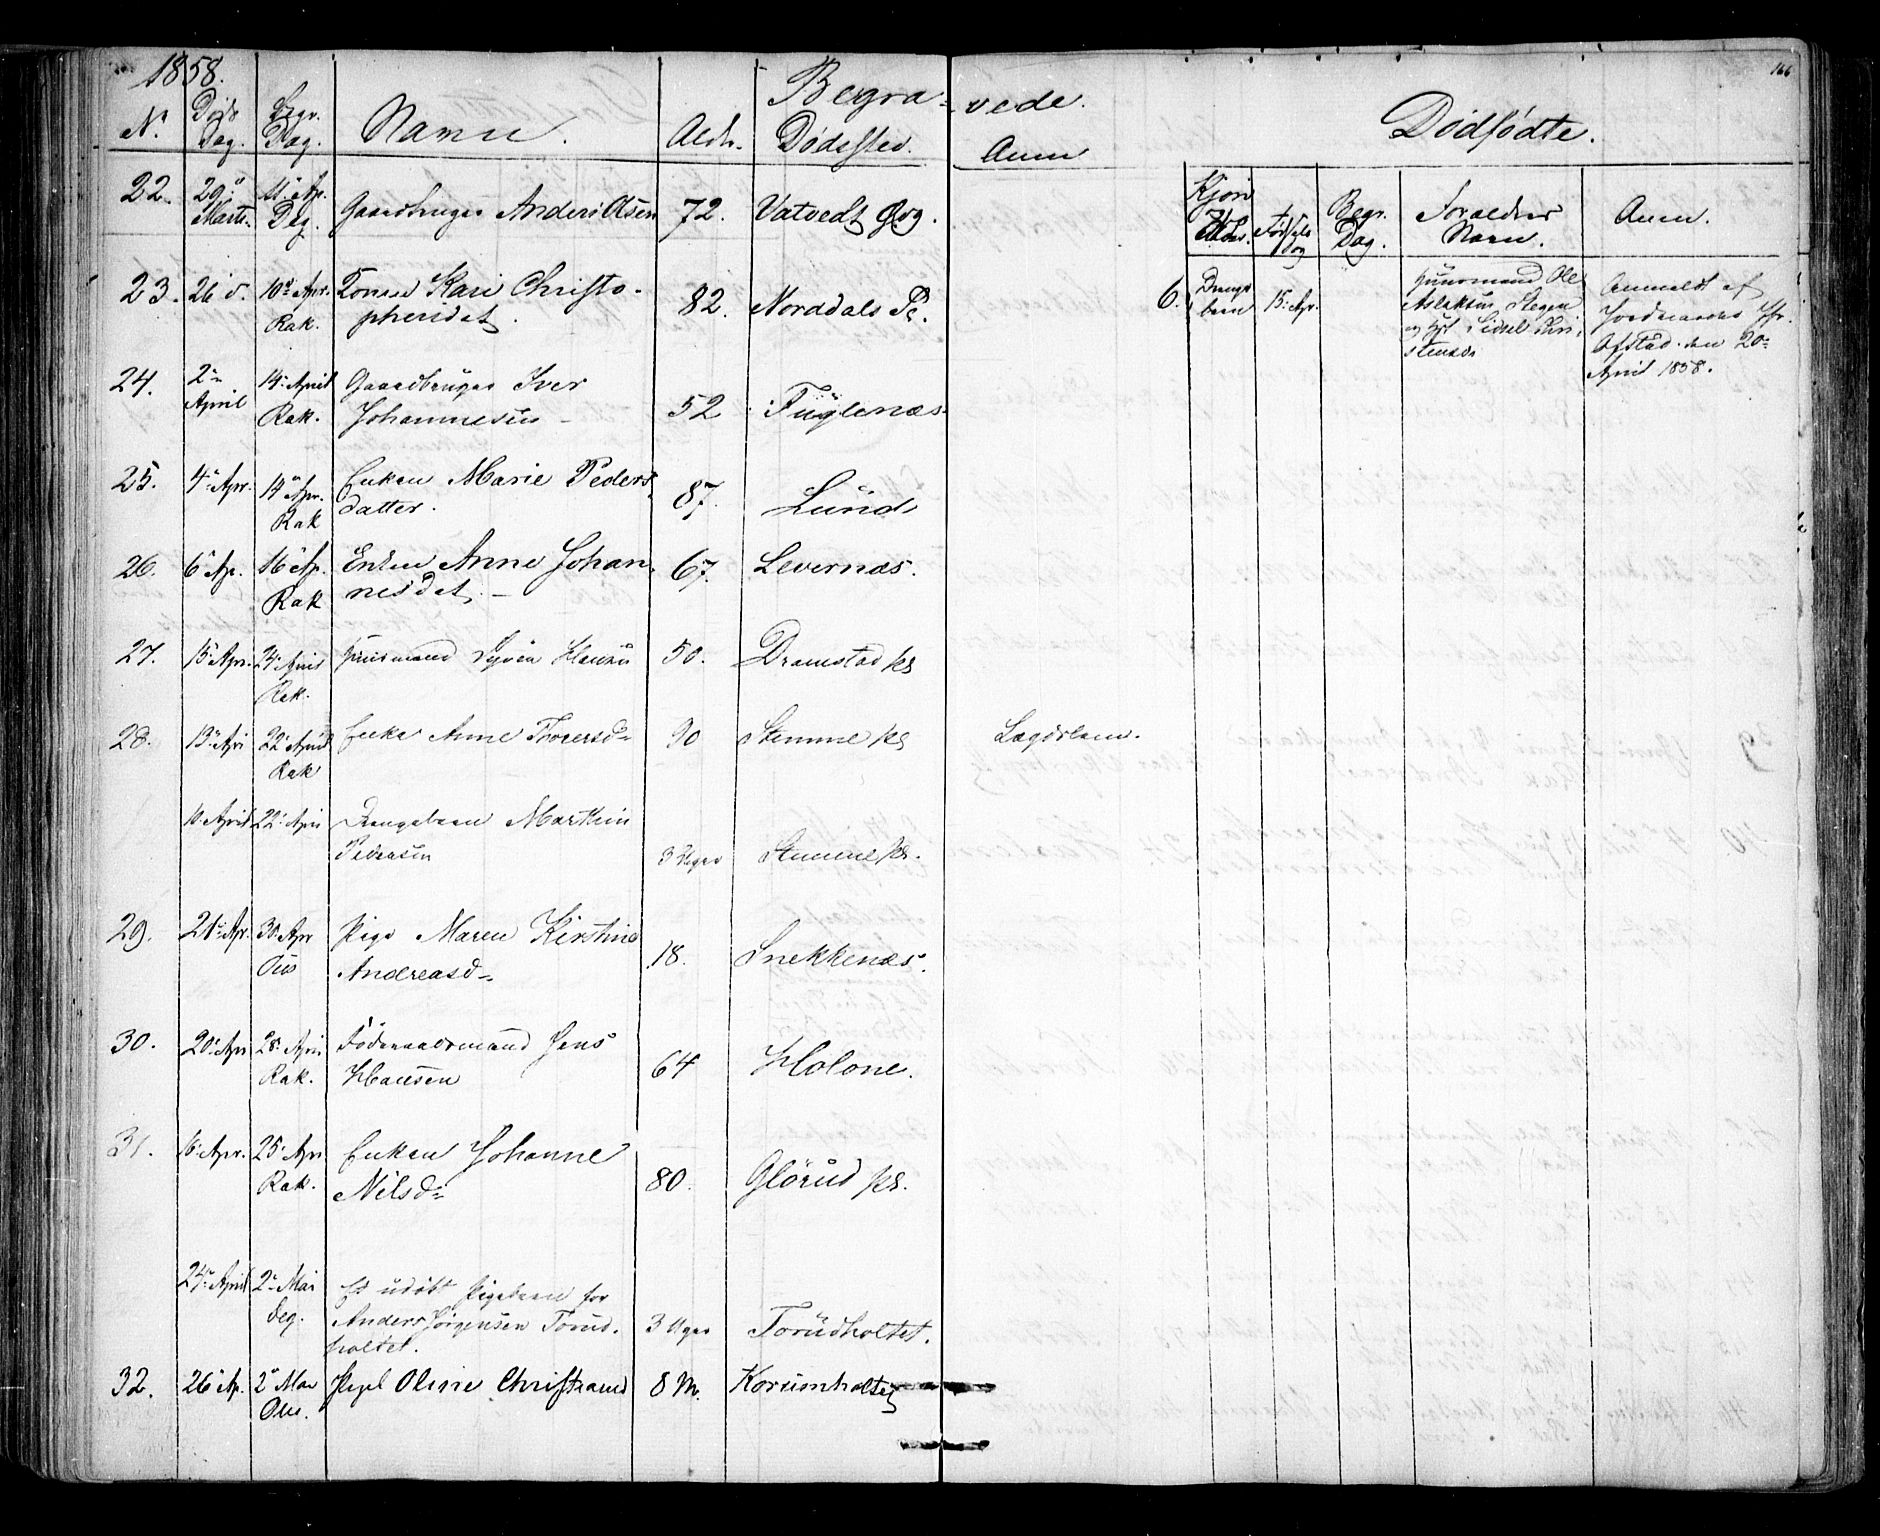 1858.
Begravede.
166
N.
Døds Dag.
Begr. Dag.
Navn.
Alder.
Dødssted.
Anm
Dødfødte.
22.
29de Marts.
11te Ap. Deg.
Gaardbruger Anders Olsen
72.
Vatvedt Øvg.
23.
26 d.
10de Apr. Rak.
Konen Kari Christo-
phersdat.
82.
Norddals
24.
2den April
14de April Rak.
Gaardbruger Iver
Johannesen
52
Fuglenæs
25.
4de Apr.
14de Apr. Rak
Enken Marie Peders-
datter.
87.
Lund
26.
6te Ap.
16de Ap. Rak
Enken Anne Johan-
nesdat.
67.
Levernæs.
27.
15de Apr.
24de April Rak.
Huusmand Hansen
50.
Dramstad
28.
13de Apr
22de April Rak
Enke Anne Toversd.
90
Stemme
Lægdslem.
10de April
22de Apri
Drengebarn Marthin
Pedersen
3 Uger
Stemme
29.
21de Apr.
30de Apr Ous
Pige Maren Kirstine
Andreasd.
18.
Snekkenæs.
30.
20de Apr
28de Apri Rak.
Føderaadsmand Jens
Hansen
64
Holone.
31.
16de Apr.
25de Apr Rak.
Enken Johanne
Nilsd.
80.
Glørud
24de April
2den Mai Deg.
Et udøbt Pigebarn for
Anders Jørgensen Torud-
holtet.
3 Uger
Torudholtet.
32.
26de Ap.
2den Mai Ous.
Oline Christiansd
8 M.
Korsumholtet
Kjøn
Fødsels Dag
Begr. Dag.
Forældres Navn.
Anm.
6.
Drenge
barn
15de Apr.
Huusmand Ole
Aslaksen Stegen
og Hst. Sidsel Chri-
stensd.
Anmeldt af
Jordmoderen
den 20de
April 1858.